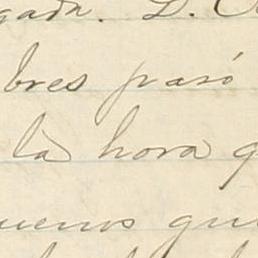 gada. D.
bres paró
la hora q
uenos qui